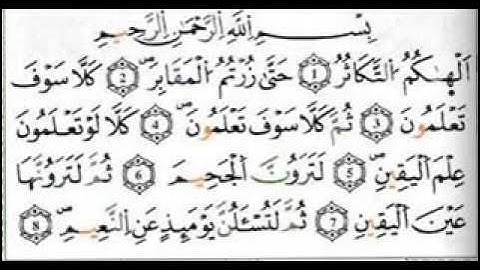 بِسْمِ اللهِ الرَّحْمٰنِ الرَّحِيْمِ
اَلْهٰىكُمُ التَّكَاثُرُ ۙ 1 حَتّٰى زُرْتُمُ الْمَقَابِرَ ۗ 2 كَلَّا سَوْفَ
تَعْلَمُوْنَ ۙ 3 ثُمَّ كَلَّا سَوْفَ تَعْلَمُوْنَ ۗ 4 كَلَّا لَوْ تَعْلَمُوْنَ
عِلْمَ الْيَقِيْنِ ۗ 5 لَتَرَوُنَّ الْجَحِيْمَ ۙ 6 ثُمَّ لَتَرَوُنَّهَا
عَيْنَ الْيَقِيْنِ ۙ 7 ثُمَّ لَتُسْـَٔلُنَّ يَوْمَئِذٍ عَنِ النَّعِيْمِ ۗ 8